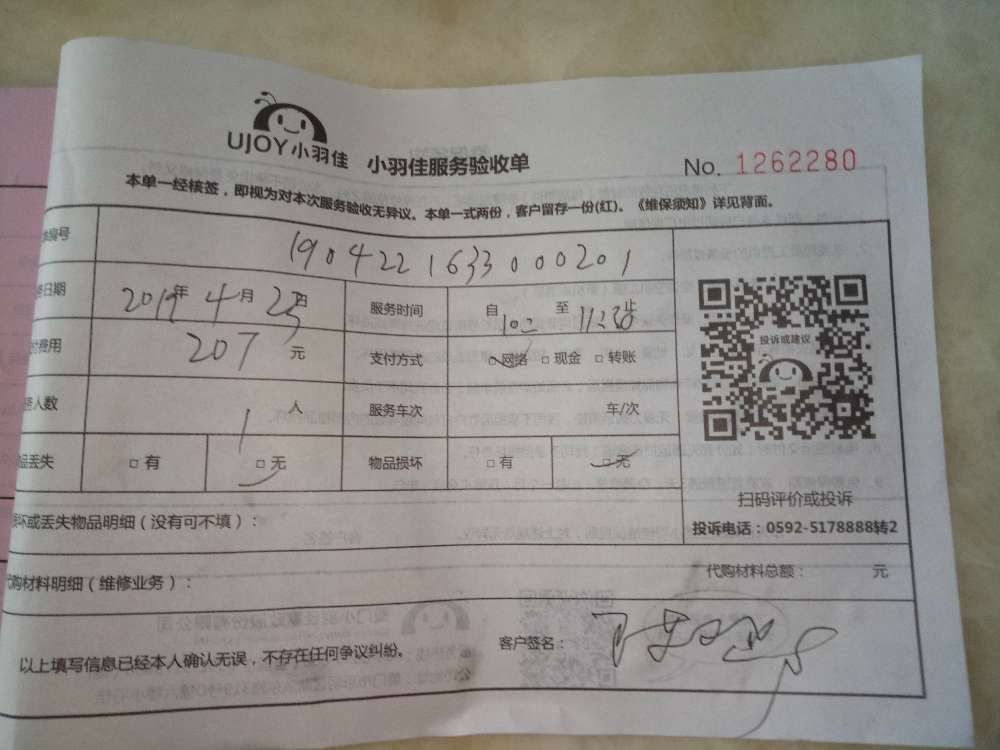 UJOY小羽佳 小羽佳服务验收单 No. 1262280
本单一经核签，即视为对本次服务验收无异议。本单一式两份，客户留存一份(红)。《维保须知》详见背面。
编号 1904221633000201
日期 2019年4月25日 服务时间 自 至 11:30止
费用 207元 支付方式 □网络 □现金 □转账
人数 1人 服务车次 车/次
丢失 □有 □无 物品损坏 □有 □无
投诉或建议
扫码评价或投诉
投诉电话：0592-5178888转2
坏或丢失物品明细（没有可不填）：
代购材料明细（维修业务）： 代购材料总额： 元
以上填写信息已经本人确认无误，不存在任何争议纠纷。 客户签名：